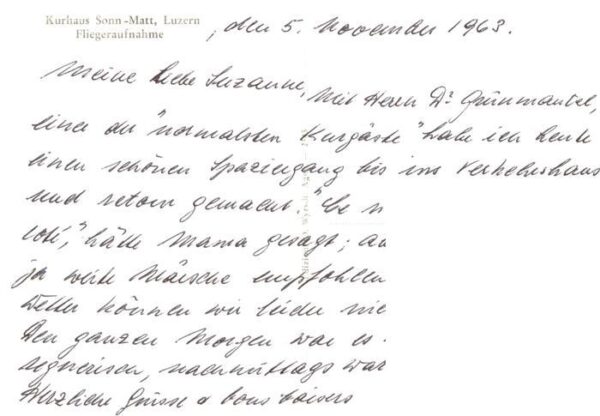 Kurhaus Sonn-Matt, Luzern
Fliegeraufnahme
, den 5. November 1963.
Meine liebe Suzanne, Mit Herrn Dr Grünmantel,
einer der "normalsten Kurgäste" habe ich heute
einen schönen Spaziergang bis ins Verkehrshaus
und retour gemacht. "Ce n
coté", hätte Mama gesagt; au
ja weite Märsche empfohlen
Wetter können wir leider nie
Den ganzen Morgen war es
regnerisch, nachmittags war
Herzliche Grüsse & bons baisers